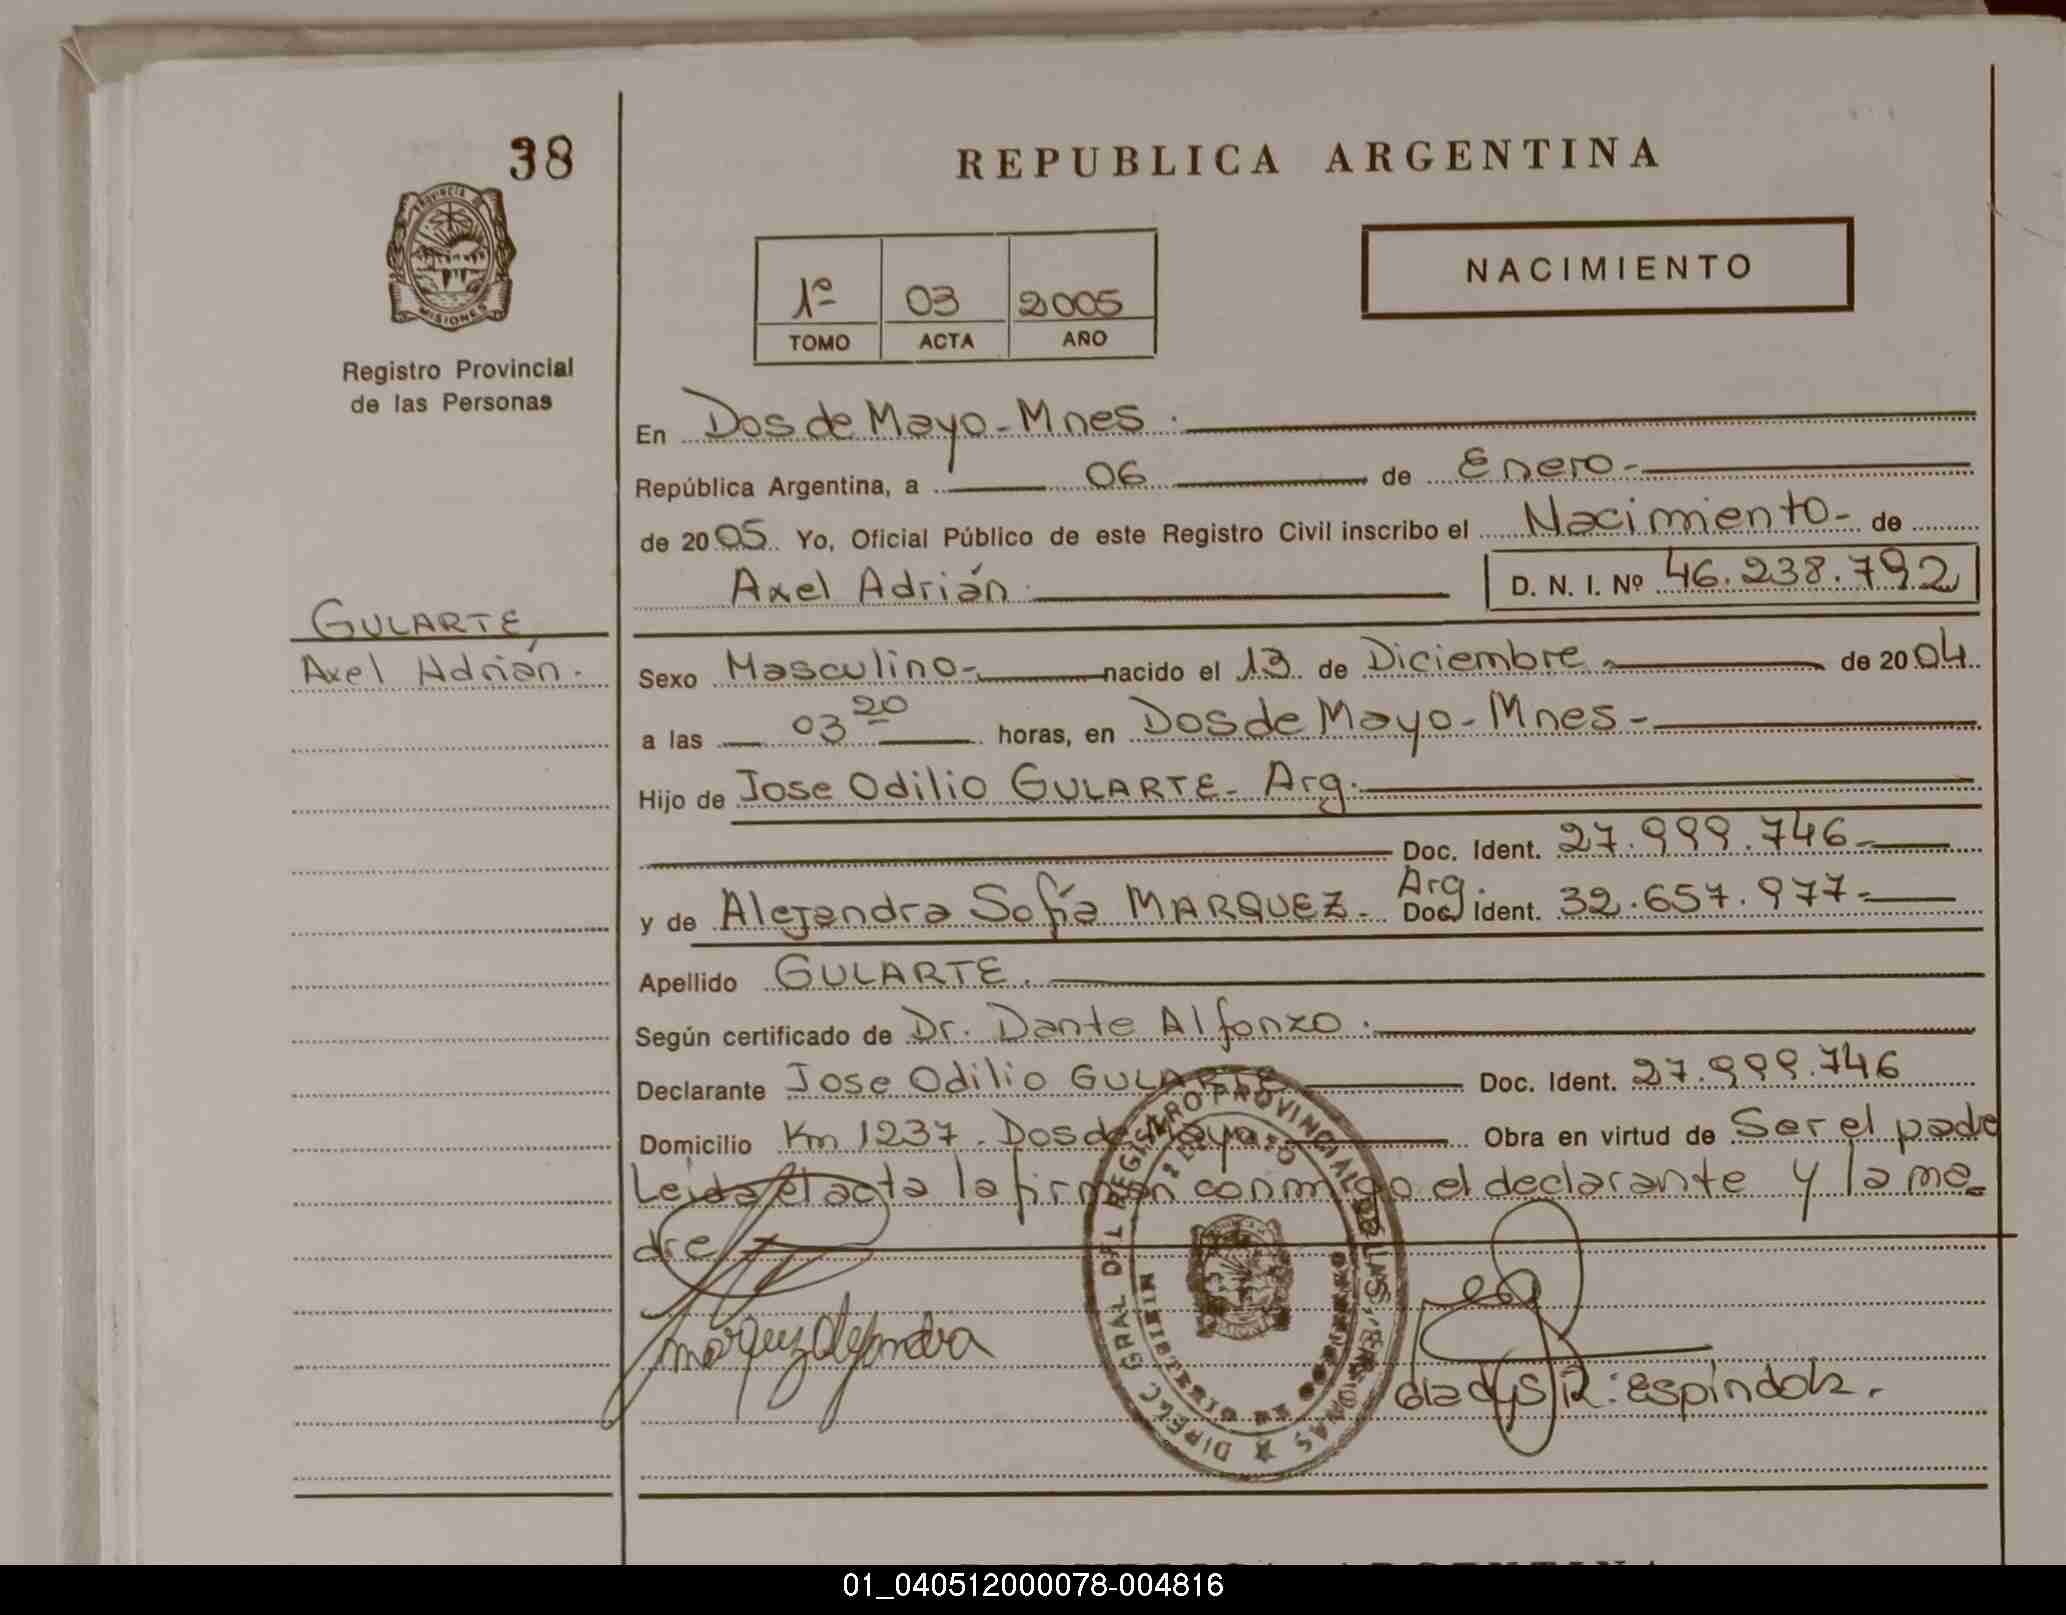 38
REPUBLICA ARGENTINA
PROVINCIA DE
MISIONES
NACIMIENTO
1º 03 2005
TOMO ACTA AÑO
Registro Provincial
de las Personas
En Dos de Mayo - Mnes.
República Argentina, a 06 de Enero -
de 2005 Yo, Oficial Público de este Registro Civil inscribo el Nacimiento - de
Axel Adrián. D. N. I. Nº 46.238.792
GULARTE,
Axel Adrián.
Sexo Masculino - nacido el 13 de Diciembre de 2004
a las 03 20 horas, en Dos de Mayo - Mnes -
Hijo de Jose Odilio GULARTE - Arg.
Doc. Ident. 27.999.746 -
Arg.
y de Alejandra Sofía MARQUEZ - Doc. Ident. 32.657.977 -
Apellido GULARTE.
Según certificado de Dr. Dante Alfonzo.
Declarante Jose Odilio GULARTE Doc. Ident. 27.999.746
Domicilio Km 1237 - Dos de Mayo Obra en virtud de Ser el padre
Leída el acta la firman conmigo el declarante y la ma-
dre
Marquez Alejandra
Gladys R. Espindola.
DIRECC GRAL DEL REGISTRO PROVINCIAL DE LAS PERSONAS
REPUBLICA ARGENTINA
01_040512000078-004816